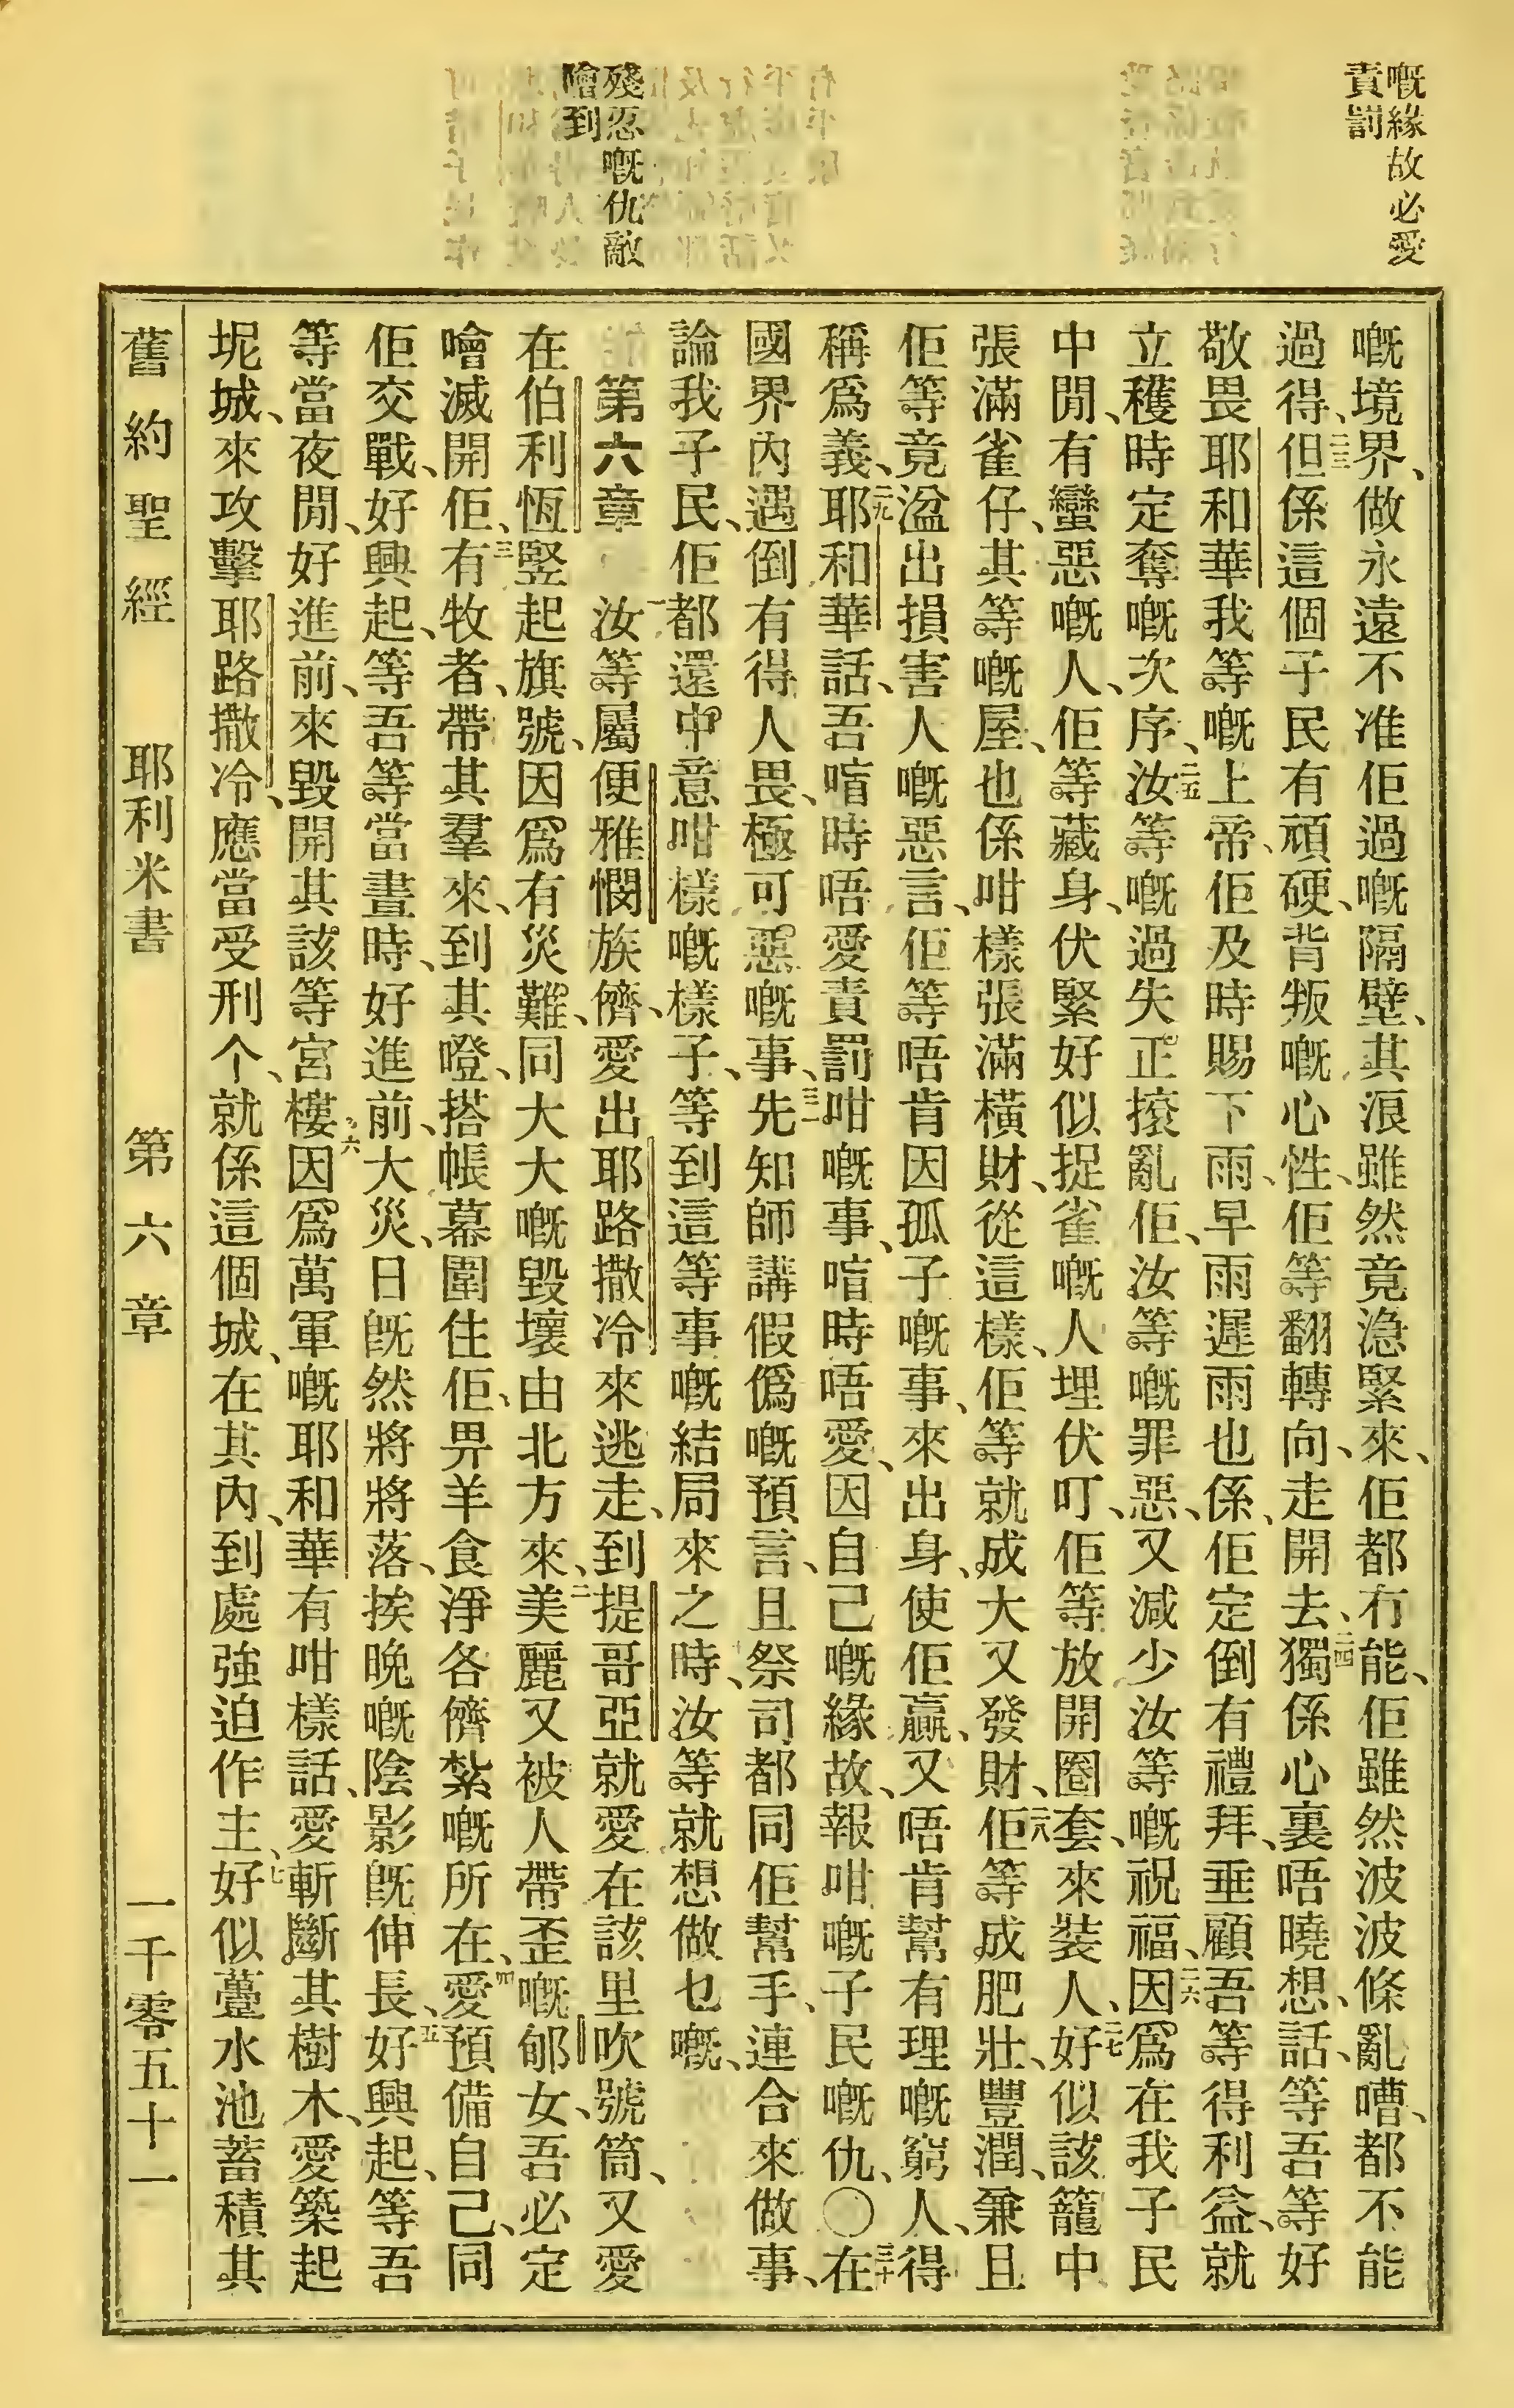 嘅緣故必愛
責罰
殘忍嘅仇敵
噲到
嘅境界、做永遠不准佢過嘅隔壁、其浪雖然竟湧緊來、佢都冇能、佢雖然波波條亂嘈、都不能
過得、二三但係這個子民有頑硬、背叛嘅心性、佢等翻轉向、走開去、二四獨係心裏唔曉想、話、等吾等好
敬畏耶和華我等嘅上帝、佢及時賜下雨、早雨遲雨也係、佢定倒有禮拜、垂顧吾等得利益、就
立穫時定奪嘅次序、二五汝等嘅過失正攃亂佢、汝等嘅罪惡、又減少汝等嘅祝福、二六因爲在我子民
中閒、有蠻惡嘅人、佢等藏身、伏緊好似捉雀嘅人埋伏叮、佢等放開圈套、來裝人、二七好似該籠中
張滿雀仔、其等嘅屋、也係咁樣張滿橫財、從這樣、佢等就成大又發財、二八佢等成肥壯、豐潤、兼且
佢等竟溢出損害人嘅惡言、佢等唔肯因孤子嘅事、來出身、使佢贏、又唔肯幫有理嘅窮人、得
稱爲義、二九耶和華話、吾喑時唔愛責罰咁嘅事、喑時唔愛、因自己嘅緣故、報咁嘅子民嘅仇、〇三十在
國界內遇倒有得人畏、極可惡嘅事、三一先知師講假僞嘅預言、且祭司都同佢幫手、連合來做事、
論我子民、佢都還中意咁樣嘅樣子、等到這等事嘅結局來之時、汝等就想做乜嘅、
第六章 一汝等屬便雅憫族儕、愛出耶路撒冷來逃走、到提哥亞就愛在該里吹號筒、又愛
在伯利恆豎起旗號、因爲有災難、同大大嘅毀壞由北方來、二美麗又被人帶歪嘅郇女、吾必定
噲滅開佢、三有牧者、帶其羣來、到其嶝、搭帳幕圍住佢、畀羊食淨各儕紮嘅所在、四愛預備自己、同
佢交戰、好興起、等吾等當晝時、好進前、大災、日旣然將將落、挨晚嘅陰影旣伸長、五好興起、等吾
等當夜閒、好進前、來毀開其該等宮樓、六因爲萬軍嘅耶和華有咁樣話、愛斬斷其樹木、愛築起
坭城、來攻擊耶路撒冷、應當受刑个、就係這個城、在其內、到處強迫作主、七好似薹水池蓄積其
舊約聖經　耶利米書　第六章　一千零五十一